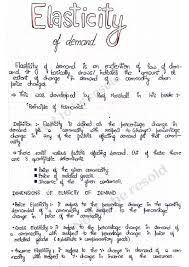 Elasticity
of demand
Elasticity of demand is an extension of law of demand
of demand, it basically shows/indicates the amount or
extent of demand of a commodity when price changes
It was developed by Prof. Marshall in his book:-
"Principle of Economics"
Definition :- Elasticity of demand is the percentage change in
demand for a commodity with respect to (% change) percentage
change in any of the factors affecting demand for that commodity.
• There are various factors affecting demand out of these there
are 3 quantitative determinants
Price of the given commodity
Price of the related goods
Income of the consumer
DIMENSIONS OF ELASTICITY OF DEMAND
• Price Elasticity :- It refers to the percentage change in quantity
demanded of a commodity with respect to the percentage
change in price of the given commodity.
• Cross Elasticity :- It refers to the percentage change in demand
of a commodity with respect to the percentage change in price of
related goods (substitute & complementary goods).
• Income Elasticity :- It refers to the % change in demand of a
commodity with respect to % change in income of the